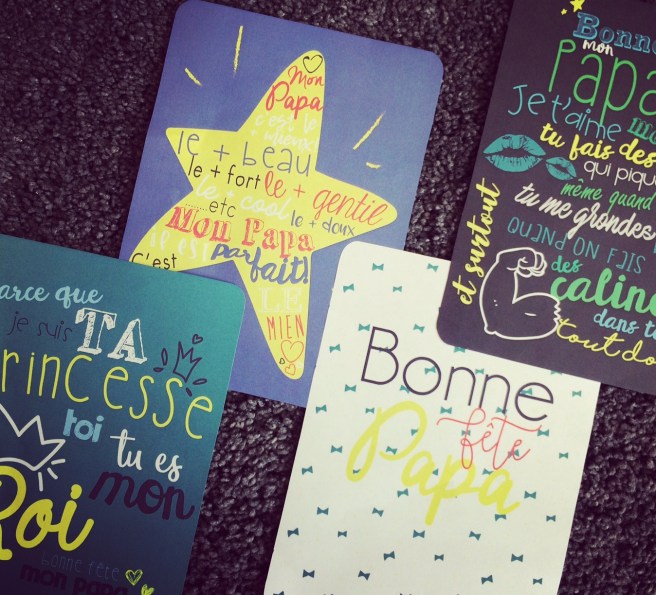 Mon
Papa
c'est le
+
le + beau
le + fort le + gentil
le + cool le + doux
......etc
Mon Papa
parfait!
C'est
LE
MIEN
Bonne
mon
PAPA
Je t'aime
tu fais des
qui
même quand
tu me grondes
QUAND ON FAIS
des
dans
tout do
et surtout
arce que
je suis TA
rincesse
toi tu es
mon
Roi
BONNE FÊTE
mon papa
Bonne
fête
Papa